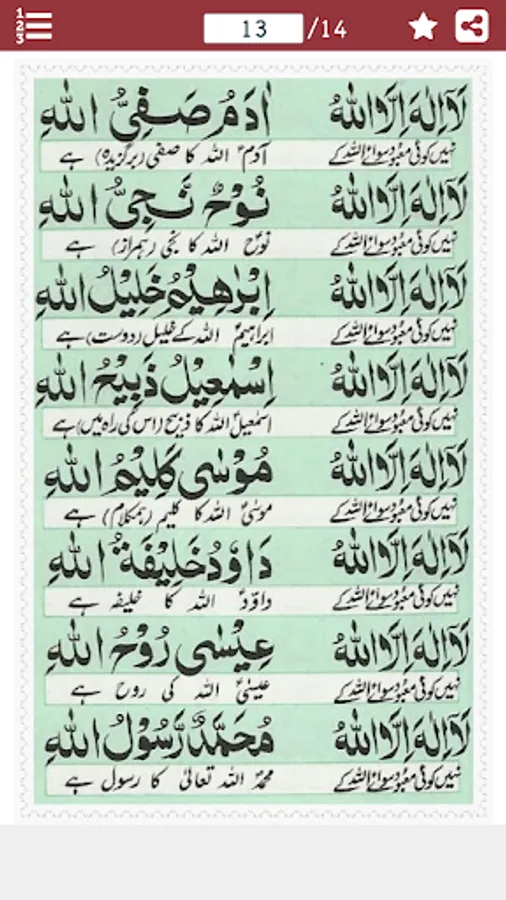 1
2
3
13 /14
لَآ اِلٰهَ اِلَّا اللّٰهُ اٰدَمُ صَفِيُّ اللّٰهِ
نہیں کوئی معبود سوائے اللہ کے آدمؑ اللہ کا صفی (برگزیدہ) ہے
لَآ اِلٰهَ اِلَّا اللّٰهُ نُوْحٌ نَجِيُّ اللّٰهِ
نہیں کوئی معبود سوائے اللہ کے نوحؑ اللہ کا نجی (ہمراز) ہے
لَآ اِلٰهَ اِلَّا اللّٰهُ اِبْرٰهِيْمُ خَلِيْلُ اللّٰهِ
نہیں کوئی معبود سوائے اللہ کے ابراہیمؑ اللہ کے خلیل (دوست) ہے
لَآ اِلٰهَ اِلَّا اللّٰهُ اِسْمٰعِيْلُ ذَبِيْحُ اللّٰهِ
نہیں کوئی معبود سوائے اللہ کے اسمٰعیلؑ اللہ کا ذبیح (اس کی راہ میں) ہے
لَآ اِلٰهَ اِلَّا اللّٰهُ مُوْسٰى كَلِيْمُ اللّٰهِ
نہیں کوئی معبود سوائے اللہ کے موسیٰؑ اللہ کا کلیم (ہمکلام) ہے
لَآ اِلٰهَ اِلَّا اللّٰهُ دَاوٗدُ خَلِيْفَةُ اللّٰهِ
نہیں کوئی معبود سوائے اللہ کے داوٗدؑ اللہ کا خلیفہ ہے
لَآ اِلٰهَ اِلَّا اللّٰهُ عِيْسٰى رُوْحُ اللّٰهِ
نہیں کوئی معبود سوائے اللہ کے عیسیٰؑ اللہ کی روح ہے
لَآ اِلٰهَ اِلَّا اللّٰهُ مُحَمَّدٌ رَّسُوْلُ اللّٰهِ
نہیں کوئی معبود سوائے اللہ کے محمدؐ اللہ تعالیٰ کا رسول ہے